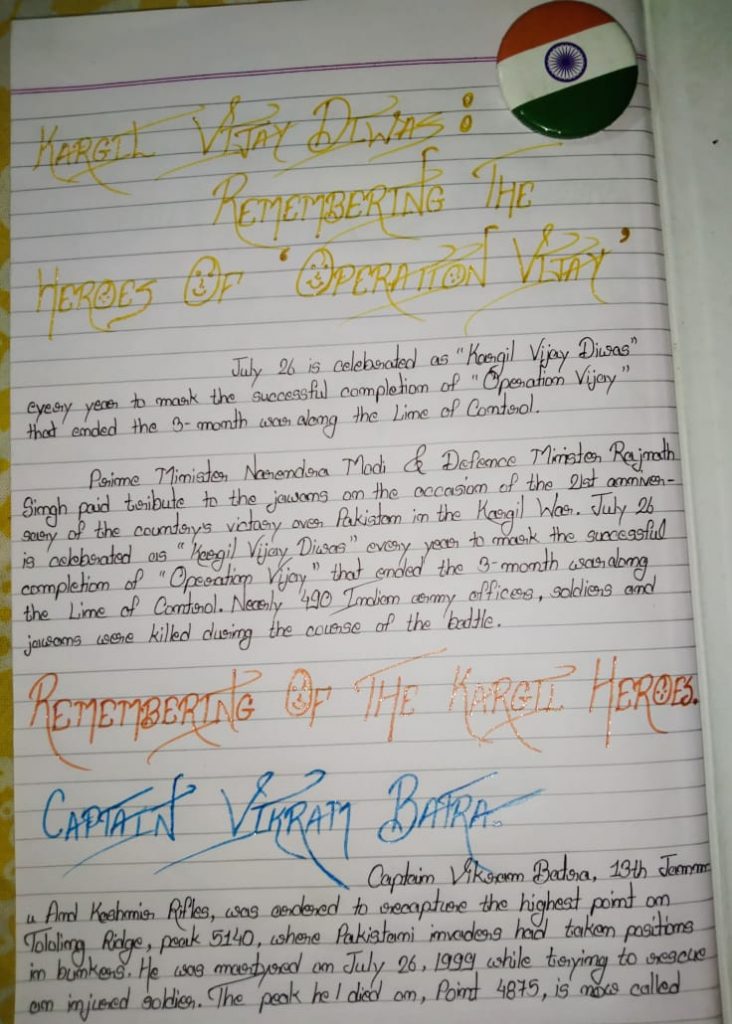 KARGIL VIJAY DIWAS:
REMEMBERING THE
HEROES OF 'OPERATION VIJAY'
July 26 is celebrated as "Kargil Vijay Diwas"
every year to mark the successful completion of "Operation Vijay"
that ended the 3-month war along the Line of Control.
Prime Minister Narendra Modi & Defence Minister Rajnath
Singh paid tribute to the jawans on the occasion of the 21st anniver-
sary of the country's victory over Pakistan in the Kargil War. July 26
is celebrated as "Kargil Vijay Diwas" every year to mark the successful
completion of "Operation Vijay" that ended the 3-month war along
the Line of Control. Nearly 490 Indian army officers, soldiers and
jawans were killed during the course of the battle.
REMEMBERING OF THE KARGIL HEROES.
CAPTAIN VIKRAM BATRA.
Captain Vikram Batra, 13th Jamm
u And Kashmir Rifles, was ordered to recapture the highest point on
Tololing Ridge, peak 5140, where Pakistani invaders had taken positions
in bunkers. He was martyred on July 26, 1999 while trying to rescue
an injured soldier. The peak he died on, Point 4875, is now called